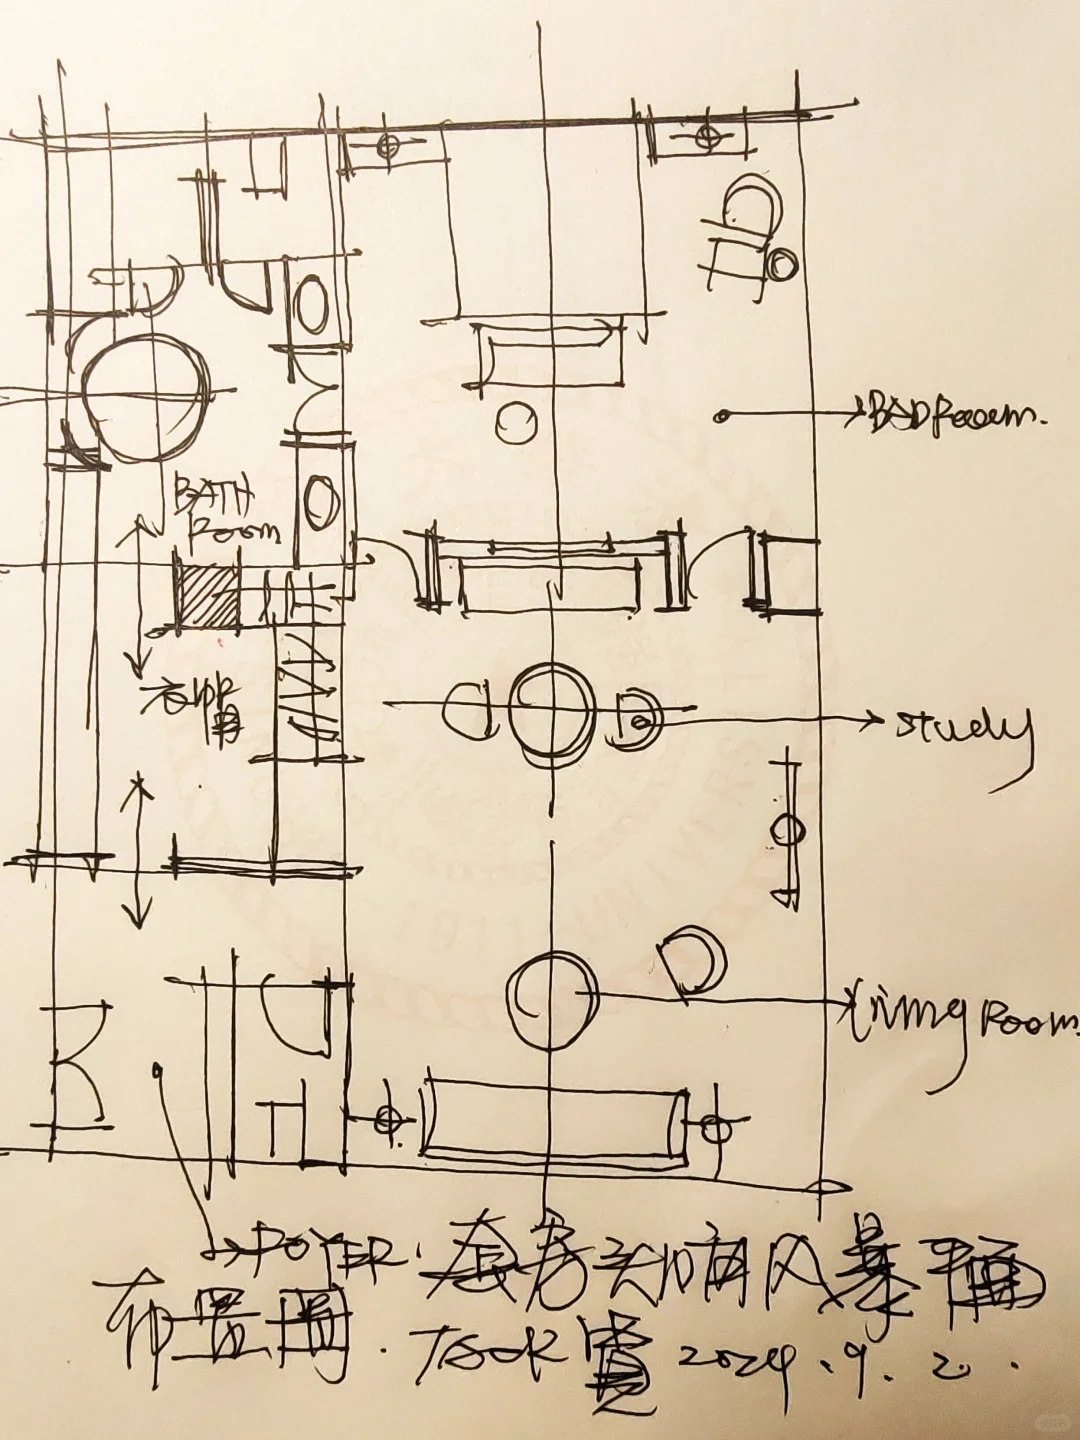 BADRoom.
BATH
Room
衣帽
study
Living Room
FOYER. 套房头脑风暴平面
布置图. 2024.9.2.